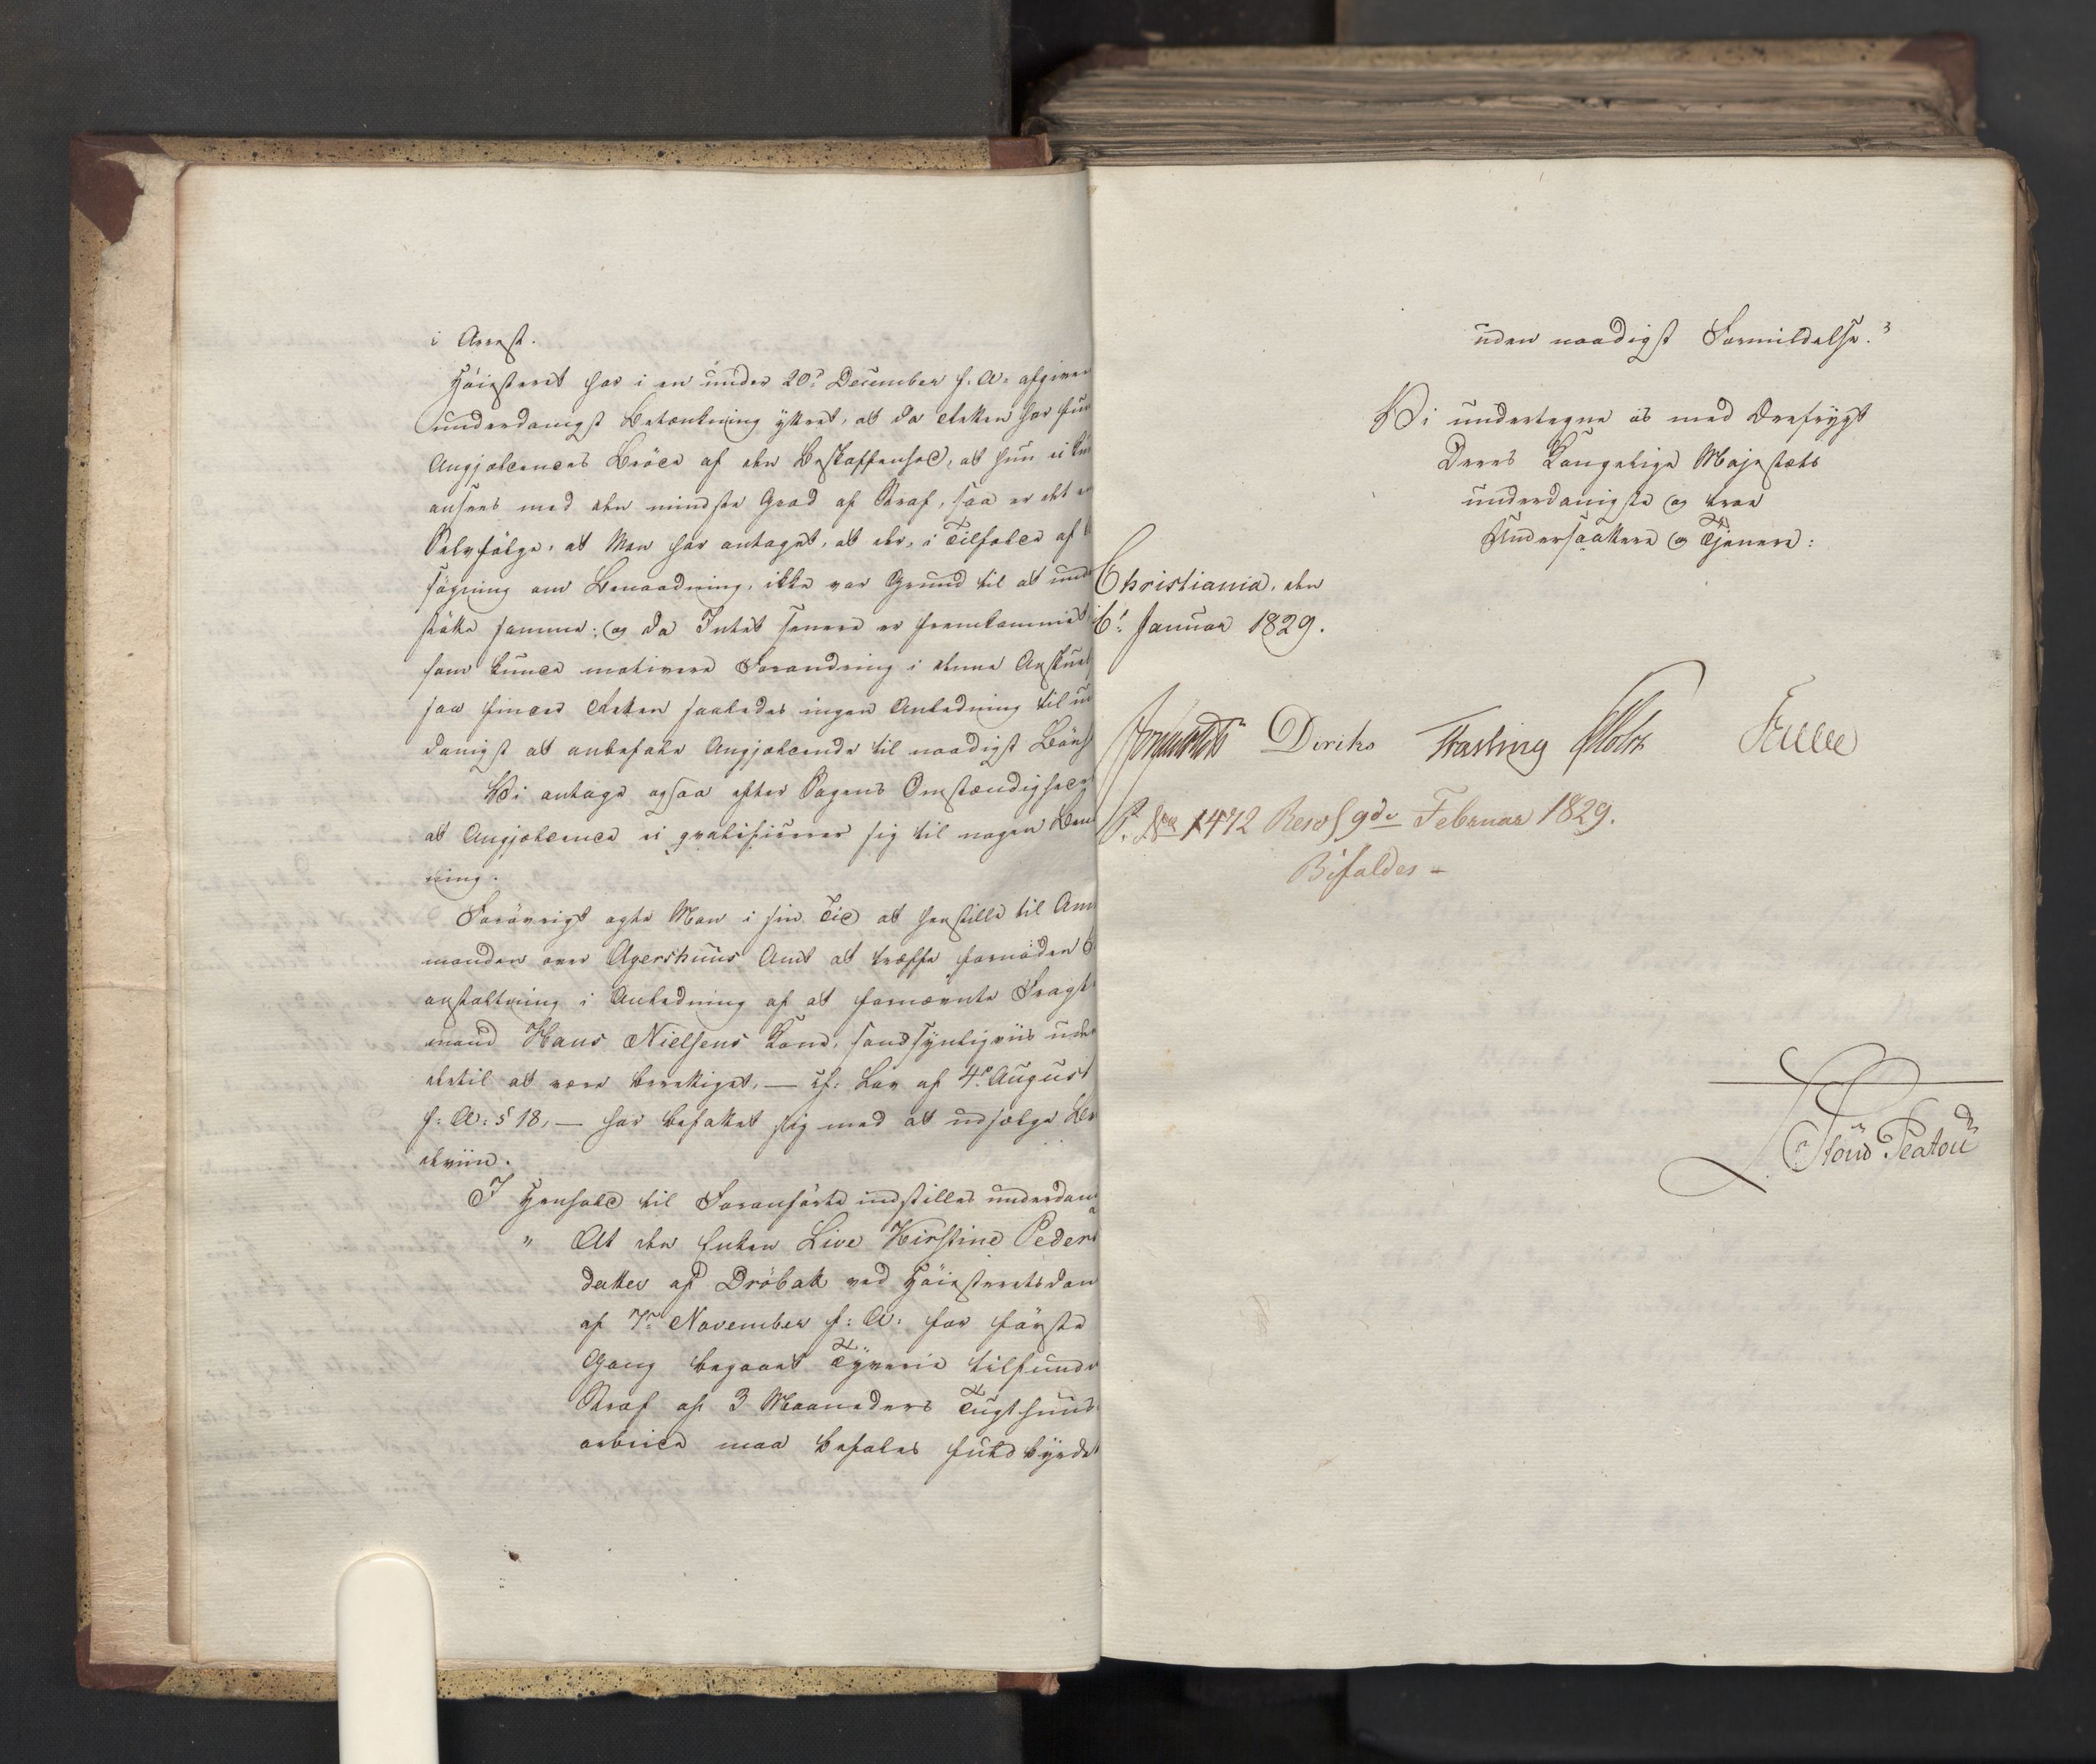 i Arrest.
Høiesteret har i en under 20de December f. A. afgiven
underdanigst Betænkning yttret, at da Acten har fun
Angjældendes Brøde af den Beskaffenhed, at hun ei kun
ansees med den mindste Grad af Straf, saa er det en
Selvfølge, at Man har antaget, at der, i Tilfælde af
søgning om Benaadning, ikke var Grund til at under
støtte samme; og da Intet senere er fremkommet,
som kunde motivere Forandring i denne Anskuel
saa finder Retten saaledes ingen Anledning til un
danigst at anbefale Angjældende til naadigst Bønh
Vi antage ogsaa efter Sagens Omstændigheder,
at Angjældende ei qvalificerer sig til nogen Ben
ning.
Forøvrigt agte Man i sin Tid at henstille til Amt
manden over Agershuus Amt at træffe fornøden
anstaltning i Anledning af at fornævnte Fragt
mand Hans Nielsens Kone, sandsynligviis uden
dertil at være berettiget, — cf. Lov af 4de August
f: A: § 18, — har befattet sig med at udsælge Bræn
deviin.
I Henhold til Foranførte indstilles underdan
" At den Enken Live Kirstine Peders
datter af Drøbak ved Høiesteretsdom
af 7de November f: A: for første
Gang begaaet Tyverie tilfundne
Straf af 3 Maaneders Tugthuus
arbeide maa befales fuldbyrdet
uden naadigst Formildelse."
Vi undertegne os med Ærefrygt
Deres Kongelige Majestæts
underdanigste og troe
Undersaatter og Tjenere:
Christiania, den
6te Januar 1829.
Diriks Fasting Holst
P. No 1472 Resol 9de Februar 1829.
Bifaldes -